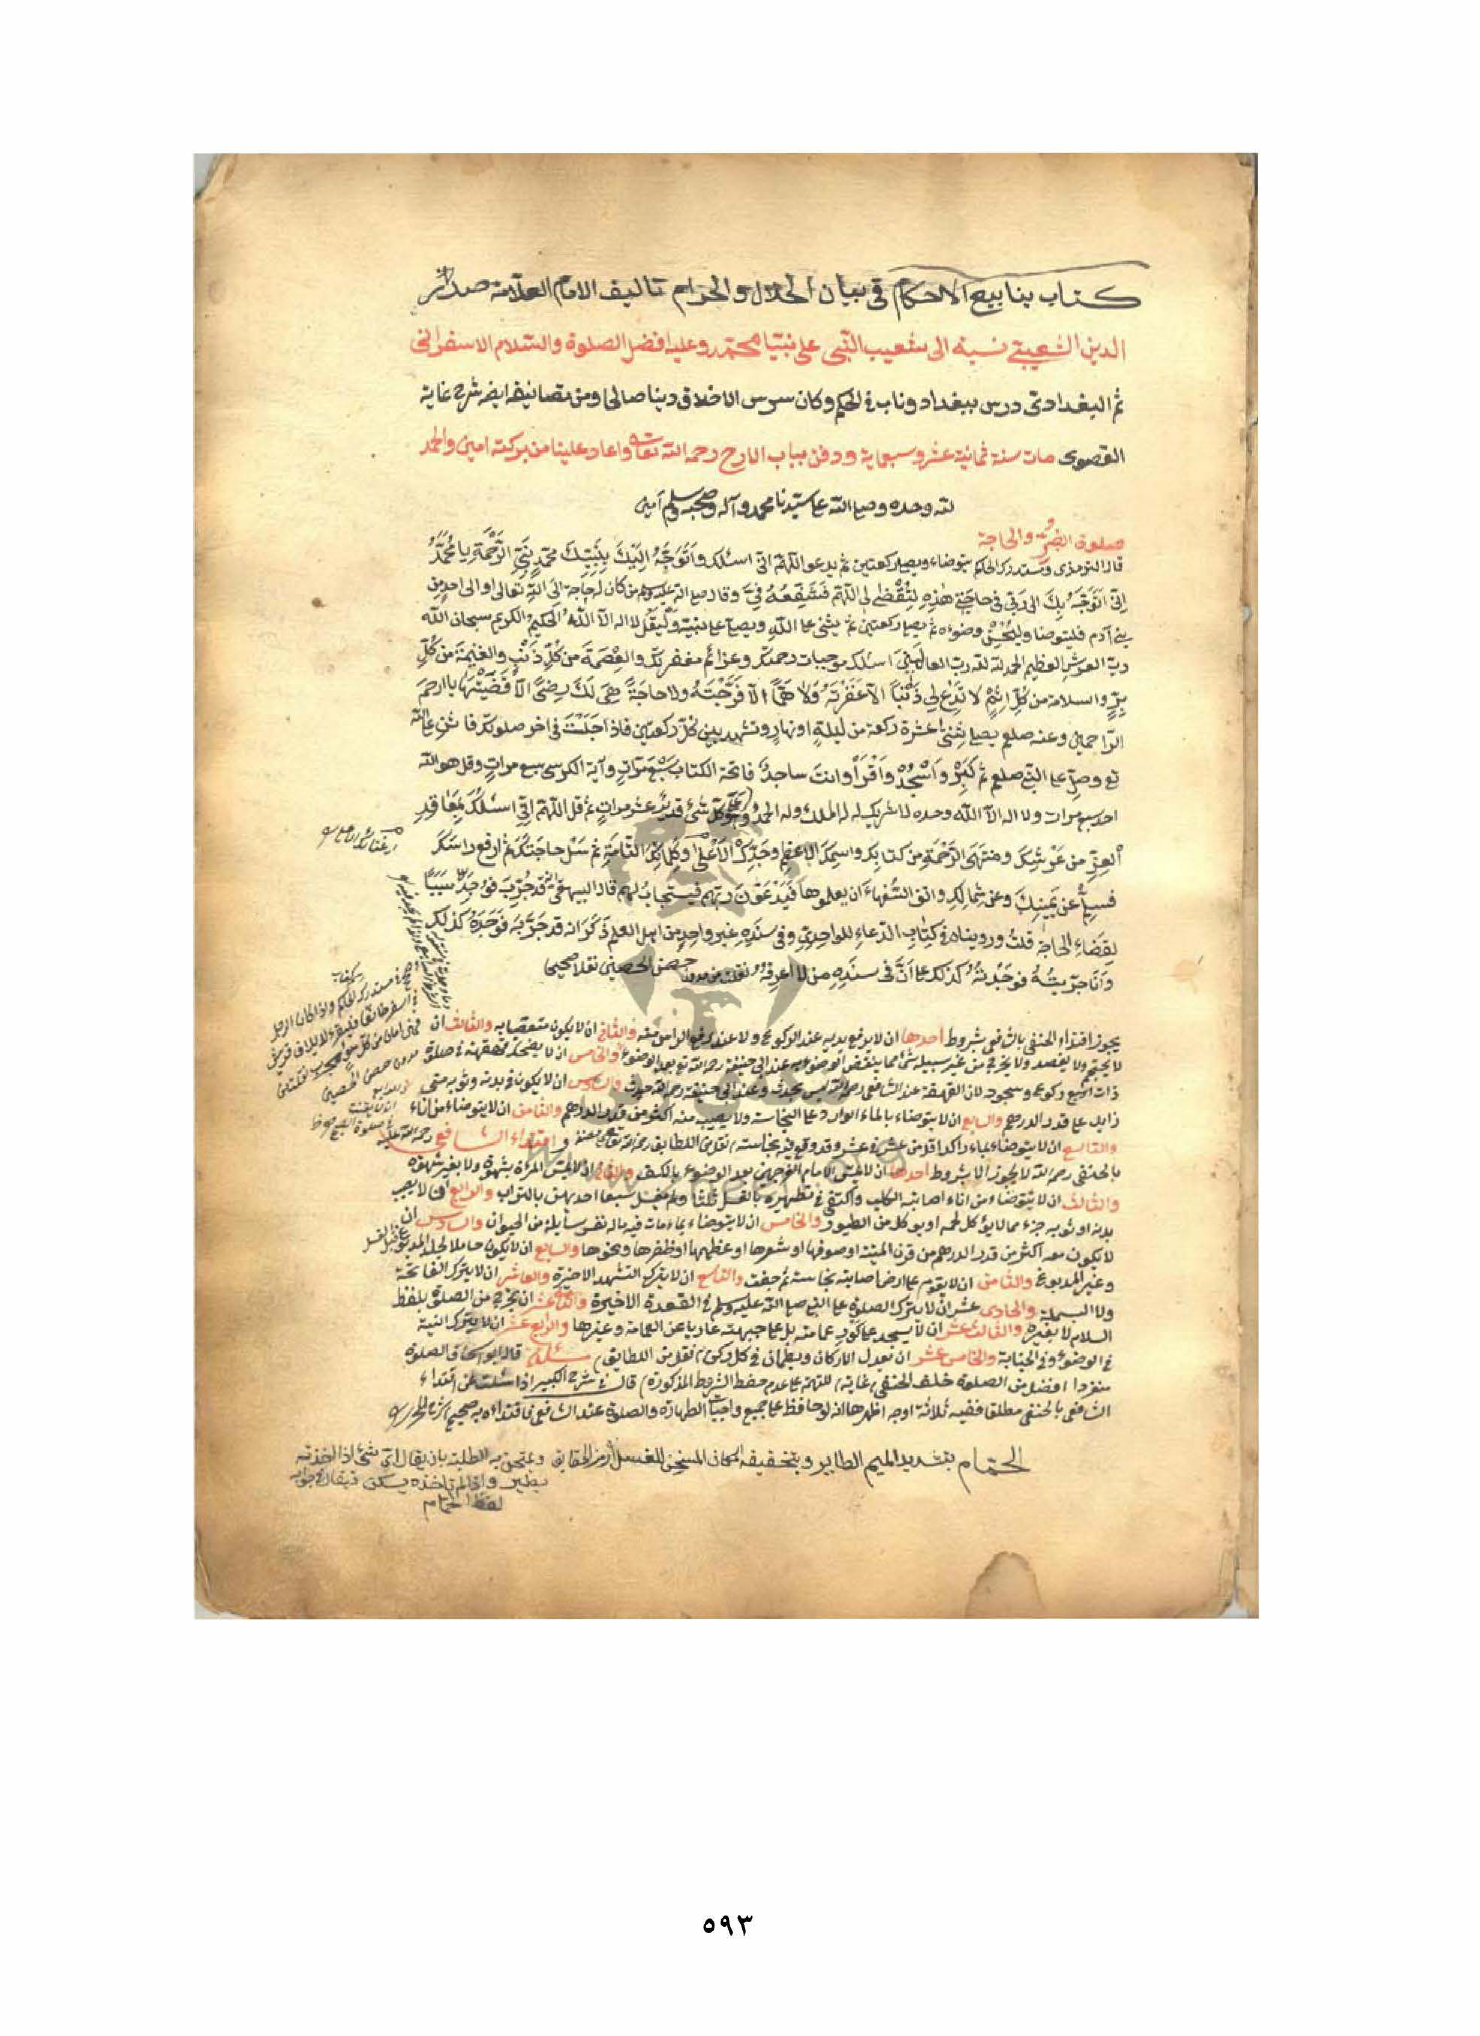 كتاب ينابيع الاحكام في بيان الحلال والحرام تاليف الامام العلامة صدر
الدين الشعيبي نسبة الى شعيب النبي على نبينا محمد وعليه افضل الصلوة والسلام الاسفرائني
ثم البغدادي درس ببغداد وناب في الحكم وكان سرس الاخلاق دينا صالحا ومن تصانيفه ايضا شرح غاية
القصوى مات سنة ثمانية عشر وسبعماية ودفن بباب الازج رحمه الله تعالى واعاد علينا من بركته امين والحمد
لله وحده وصلى الله على سيدنا محمد وآله وصحبه وسلم آمين
صلوة الضر والحاجة
قال الترمذي ومستدرك الحاكم يتوضاء ويصلي ركعتين ثم يدعو اللهم اني اسئلك وَاَتَوَجَّهُ اِلَيْكَ بِنَبِيِّكَ محمّدٍ نَبِيِّ الرَّحْمَةِ يا مُحَمَّدُ
اِنّي اَتَوَجَّهُ بِكَ الى رَبّي في حاجَتي هٰذِهِ لِتُقْضٰى لي اللهم فَشَفِّعْهُ فِيَّ وقال صلى الله عليه وسلم من كان له حاجة الى الله تعالى او الى احد من
بني آدم فليتوضا وليُحْسِنْ وضوءه ثم يصلي ركعتين ثم يثني على اللّٰه ويصلي على نبيه وَلْيَقُلْ لا اله الا اللّٰهُ الحكيم الكريم سبحان الله
ربّ العرش العظيم الحمد لله رب العالمين اسئلك موجبات رحمتك وعزائم مغفرتك والعِصْمَةَ من كُلِّ ذَنْبٍ والغنيمة من كُلِّ
بِرٍّ والسلامة من كُلِّ اِثْمٍ لا تَدَعْ لي ذَنْباً اِلّا غَفَرْتَهُ وَلا هَمًّا اِلّا فَرَّجْتَهُ ولا حاجَةً هِيَ لَكَ رِضًى اِلّا قَضَيْتَها يا ارحم
الرّاحمين وعنه صلعم يصلي اثني عشرة ركعة من ليلةٍ او نهارٍ وتشهد بين كُلِّ ركعتين فاذا جَلَسْتَ في اخر صلوتك فاثنِ على الله
تع وصلِّ على النبي صلعم ثم كَبِّرْ وَاسْجُدْ وَاقْرَأْ وانت ساجدٌ فاتحة الكتاب سَبْعَ مرّاتٍ وآية الكرسي سبع مراتٍ وقل هو الله
احد سبع مرات ولا اله الا الله وحده لا شريك له له الملك وله الحمد وهو على كل شئ قدير عشر مراتٍ ثم قل اللهم اِنّي اسئلك بمَعَاقِدِ
العِزِّ من عَرْشِكَ ومنتهى الرَّحْمَةِ من كتابِكَ واسمك الاعظم وجَدِّكَ الاَعْلى وكلماتك التّامّةِ ثم سَلْ حاجَتَكَ ثم ارفع راسَكَ
فسلّم عن يمينِكَ وعن شمالِكَ واتق السُّفَهاءَ ان يعلموها فَيَدْعُونَ ربّهم فيستجاب لهم قال البيهقي انه قد جُرِّبَ فَوُجِدَ سَبَباً
لِقَضاءِ الحاجة قلتُ ورويناه في كتاب الدّعاءِ للواحدي وفي سنده غير واحدٍ من اهل العلم ذَكَرَ انه قد جَرَّبَهُ فَوَجَدَهُ كذلك
وَاَنا جرّبتُهُ فوجدْتُهُ كذلك على اَنَّ في سنده من لا اعرِفُهُ نقلت من حصن الحصين نقلا صحيحا
يجوز اقتداء الحنفي بالشافعي بشروط احدها ان لا يرفع يديه عند الركوع ولا عند رفع الراس منه والثاني ان لا يكون متعصبا به والثالث ان
لا يحتجم ولا يفصد ولا يخرج من غير سبيله شئ مما ينقض الوضوء به عند ابي حنيفة رحمه الله تع بعد الوضوء والخامس ان لا يضحك قهقهة في صلوة
ذات ركوع وسجود لان القهقهة عند الشافعي رحمه الله ليس بحدث وعند ابي حنيفة رحمه الله حدث والسادس ان لا يكون في بدنه وثوبه مني
زايد على قدر الدرهم والسابع ان لا يتوضاء بالماء الوارد على النجاسة ولا يصيب منه اكثر من قدر الدرهم والثامن ان لا يتوضاء من اناء
والتاسع ان لا يتوضاء بماء راكد اقل من عشر في عشر وقد وقع فيه نجاسة نقل من اللطايف رحمه الله تعالى واقتداء الشافعي
بالحنفي رحمه الله لا يجوز الا بشروط احدها ان لا يمس الامام الفرجين بعد الوضوء بالكف والثاني ان لا يمس المرأة بشهوة ولا بغير شهوة
والثالث ان لا يتوضاء من اناء اصابه الكلب واكتفى في تطهيره بالغسل ثلثا ولم يغسل سبعا احديهن بالتراب والرابع ان لا يصيب
بدنه او ثوبه خرء ما لا يؤكل لحمه او يوكل من الطيور والخامس ان لا يتوضاء بماء مات فيه ماله نفس سايلة من الحيوان والسادس ان
لا يكون معه اكثر من قدر الدرهم من قرن الميتة او صوفها او شعرها او عظمها او ظفرها ونحوها والسابع ان لا يكون حاملا لجلد المدبوغ
وغير المدبوغ والثامن ان لا يقوم على ارض اصابته نجاسة ثم جفت والتاسع ان لا يترك التشهد الاخيرة والعاشر ان لا يترك الفاتحة
ولا البسملة والحادي عشر ان لا يترك الصلوة على النبي صلى الله عليه وسلم في القعدة الاخيرة والثاني عشر ان يخرج من الصلوة بلفظ
السلام لا بغيره والثالث عشر ان لا يسجد على كور عمامته بل على جبهته عاريا عن العمامة وغيرها والرابع عشر ان لا يترك النية
في الوضوء وفي الجنابة والخامس عشر ان يعدل الاركان ويطمئن في كل ركن نقل من اللطايف مسئلة قال ابو اسحاق الصلوة
منفردا افضل من الصلوة خلف الحنفي للتهمة على عدم حفظ الشروط المذكورة قال في شرح الكبير اذا سئلت عن اقتداء
الشافعي بالحنفي مطلقا ففيه ثلاثة اوجه اظهرها انه لو حافظ على جميع واجبات الطهارة والصلوة عند الشافعي فاقتداءه به صحيح
الحمام بتشديد الميم الطاير وبتخفيفه المكان المسخن للغسل رمز الحقايق ويمتحن به الطلبة بان يقال اي شئ اذا اخذته
يطير واذا لم تاخذه يسكن فيقال في جوابه
لفظ الحمام
٥٩٣